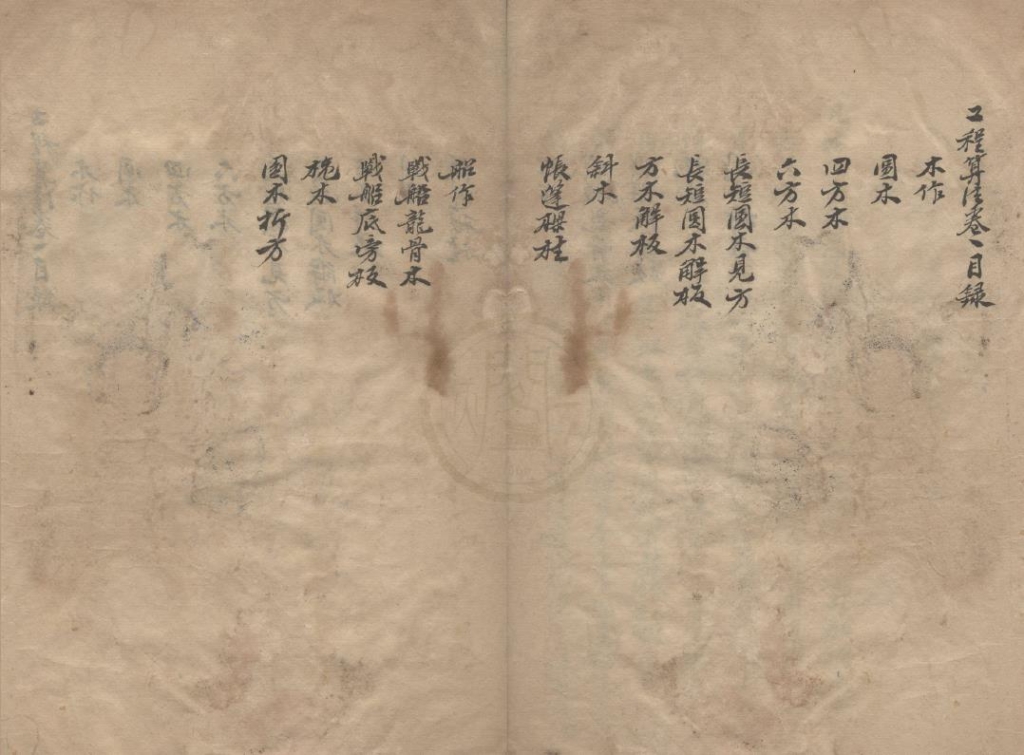 工程算法卷一目錄
木作
圓木
四方木
六方木
長短圓木見方
長短圓木解板
方木解板
斜木
帳篷
船作
戰船龍骨木
戰船底旁板
桅木
圓木折方